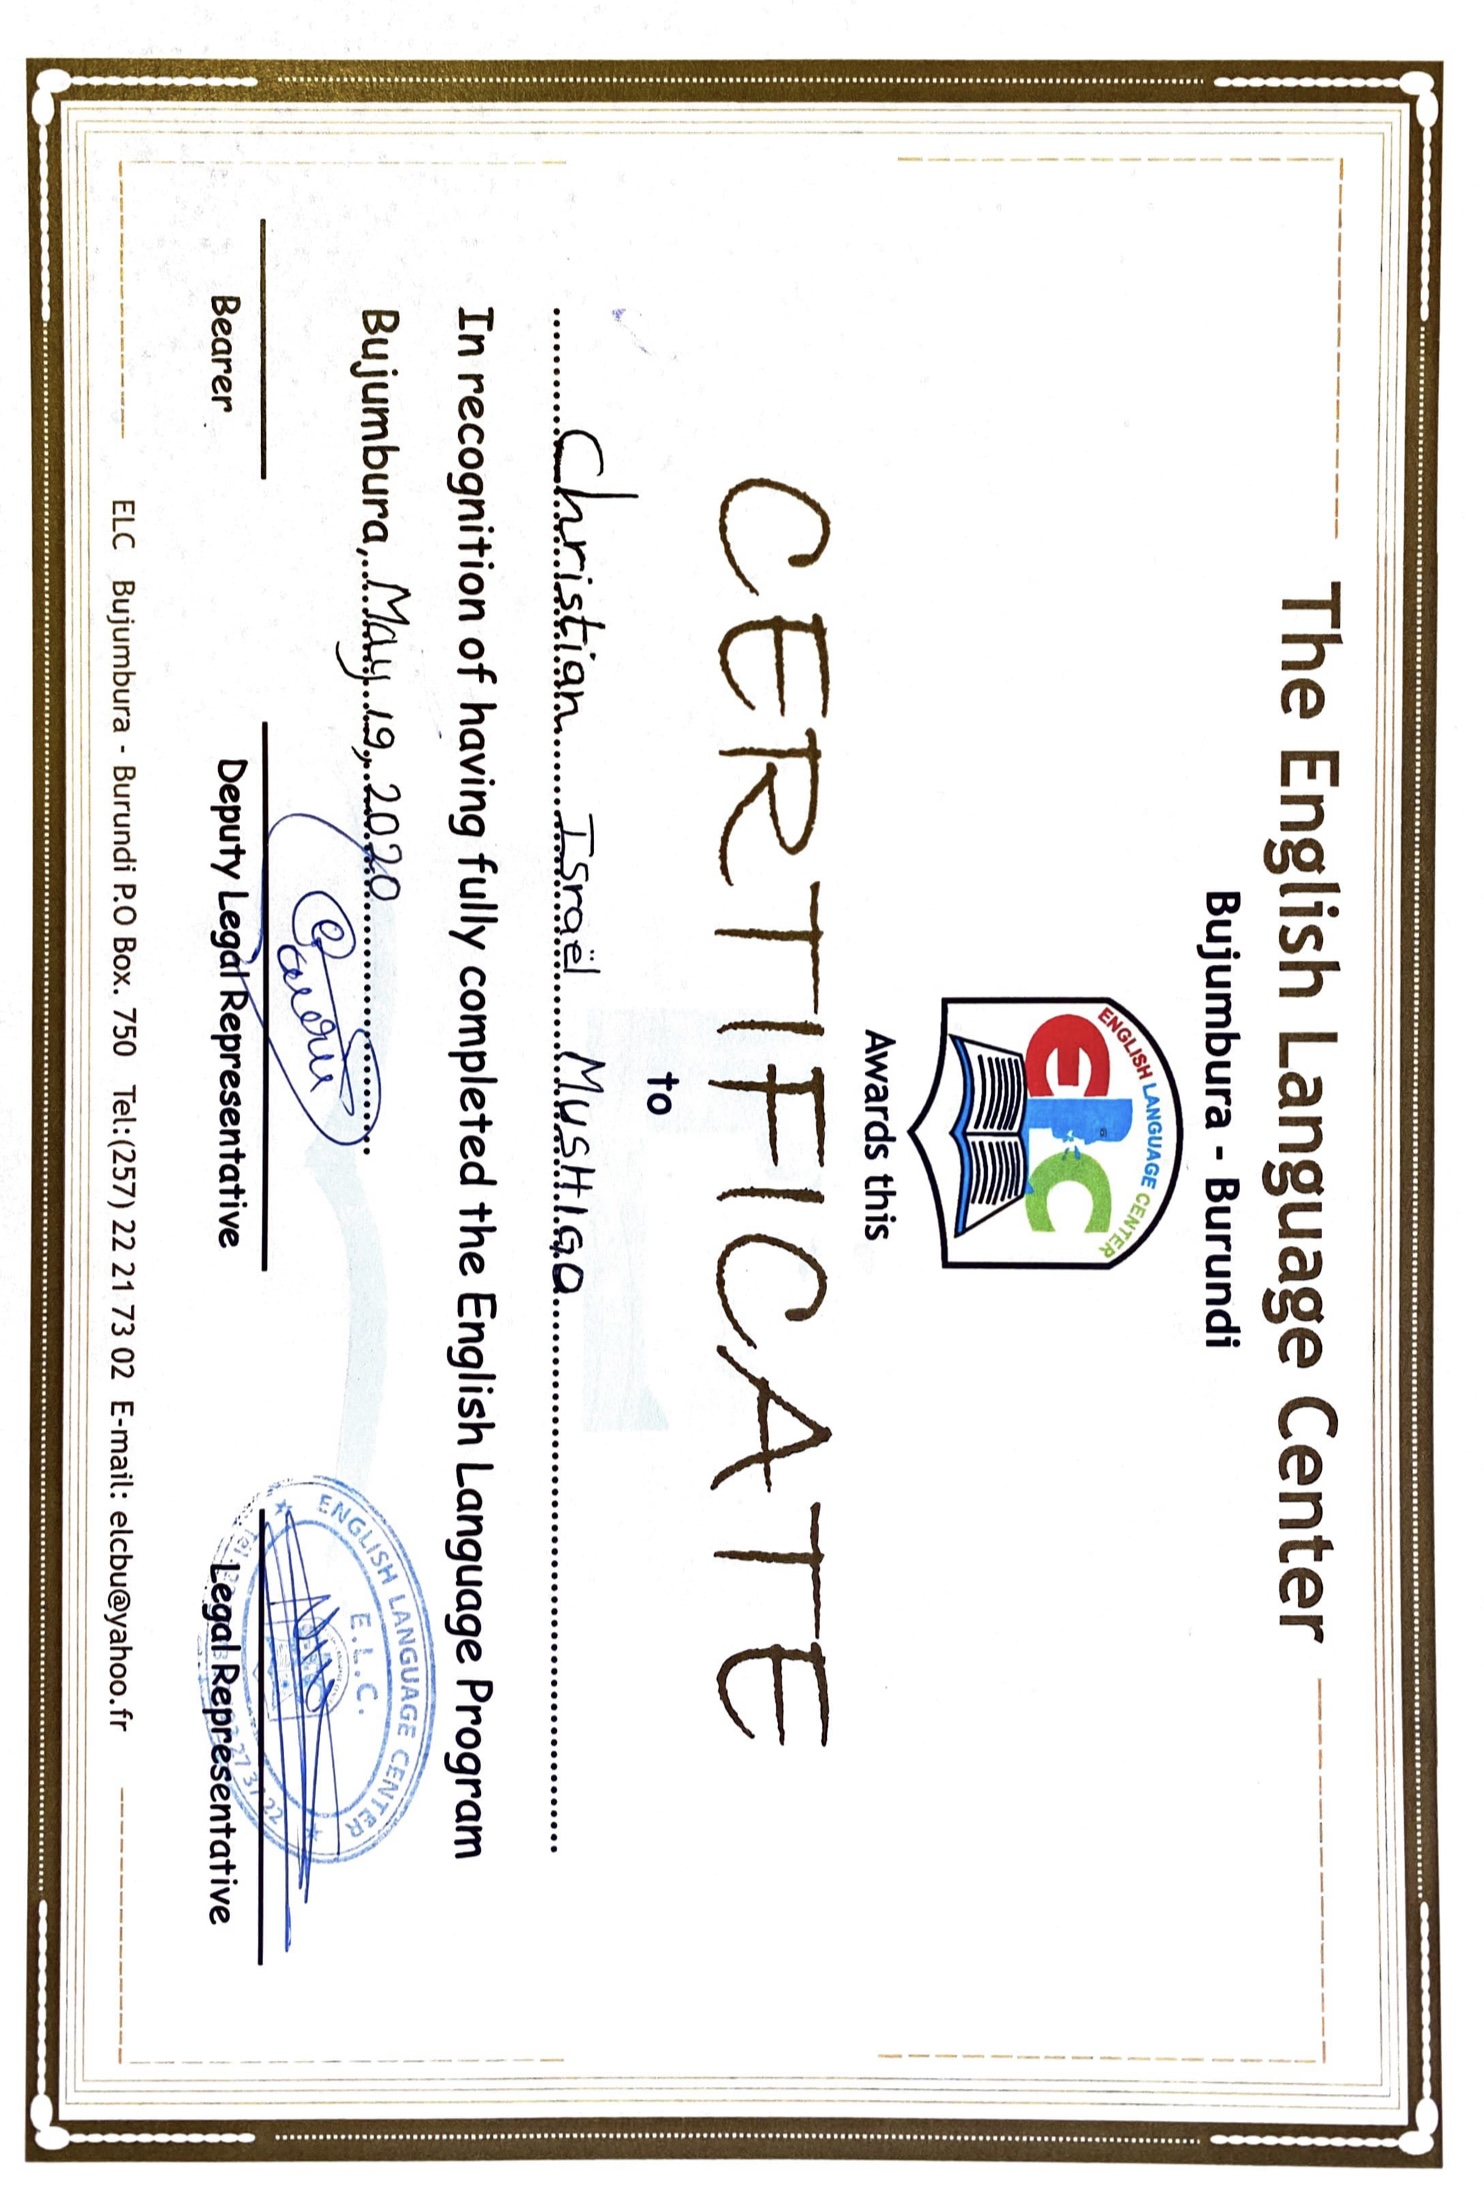 The English Language Center
Bujumbura - Burundi
ENGLISH LANGUAGE CENTER
elc
Awards this
CERTIFICATE
to
Christian Israël MUSHIGO
In recognition of having fully completed the English Language Program
Bujumbura, May 19, 2020
ENGLISH LANGUAGE CENTER
E.L.C.
Bearer
Deputy Legal Representative
Legal Representative
ELC Bujumbura - Burundi P.O Box. 750 Tel:(257) 22 21 73 02 E-mail: elcbu@yahoo.fr